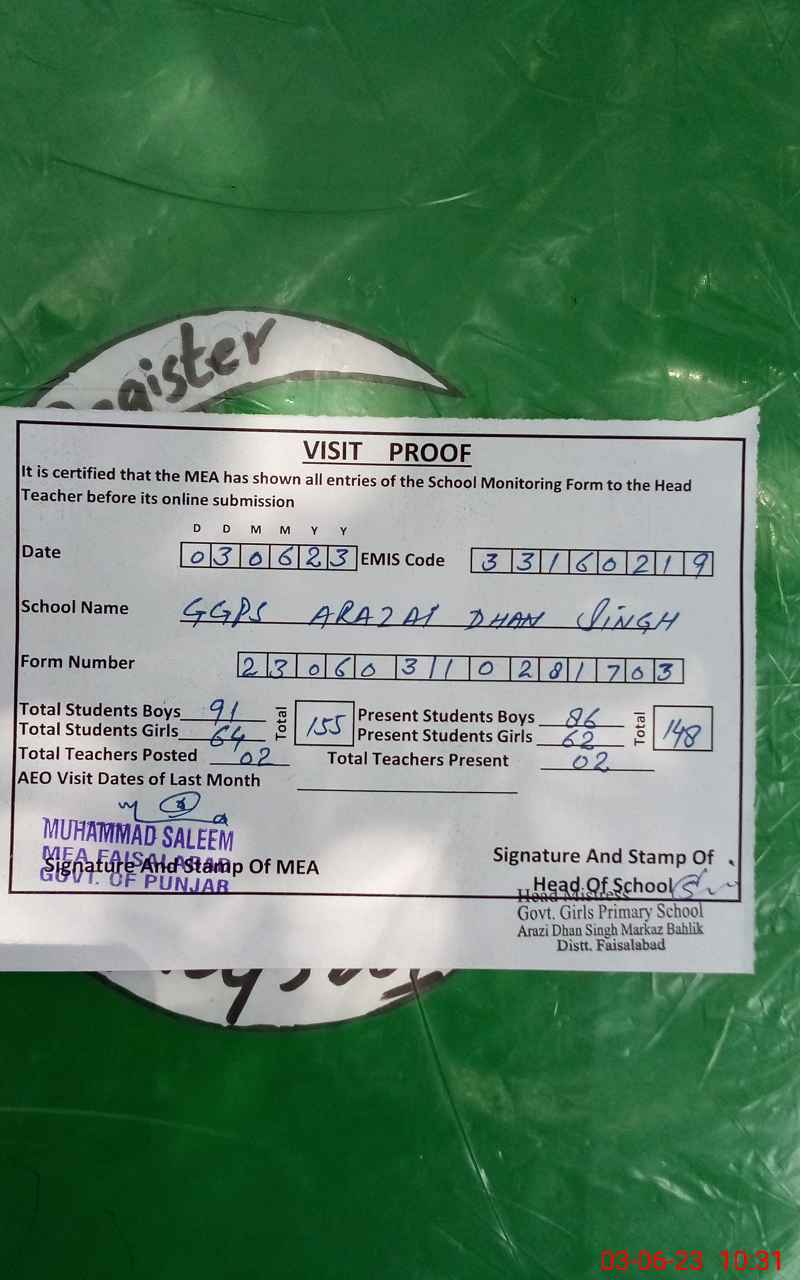 Register
VISIT PROOF
It is certified that the MEA has shown all entries of the School Monitoring Form to the Head
Teacher before its online submission
D D M M Y Y
Date 030623 EMIS Code 33160219
School Name GGPS ARAZAI DHAN SINGH
Form Number 23060311028 1703
Total Students Boys 91 Total 155 Present Students Boys 86 Total 148
Total Students Girls 64 Present Students Girls 62
Total Teachers Posted 02 Total Teachers Present 02
AEO Visit Dates of Last Month
MUHAMMAD SALEEM
MEA FAISALABAD
Signature And Stamp Of MEA
GOVT. OF PUNJAB
Signature And Stamp Of
Head Of School
Head Mistress
Govt. Girls Primary School
Arazi Dhan Singh Markaz Bahlik
Distt. Faisalabad
03-06-23 10:31